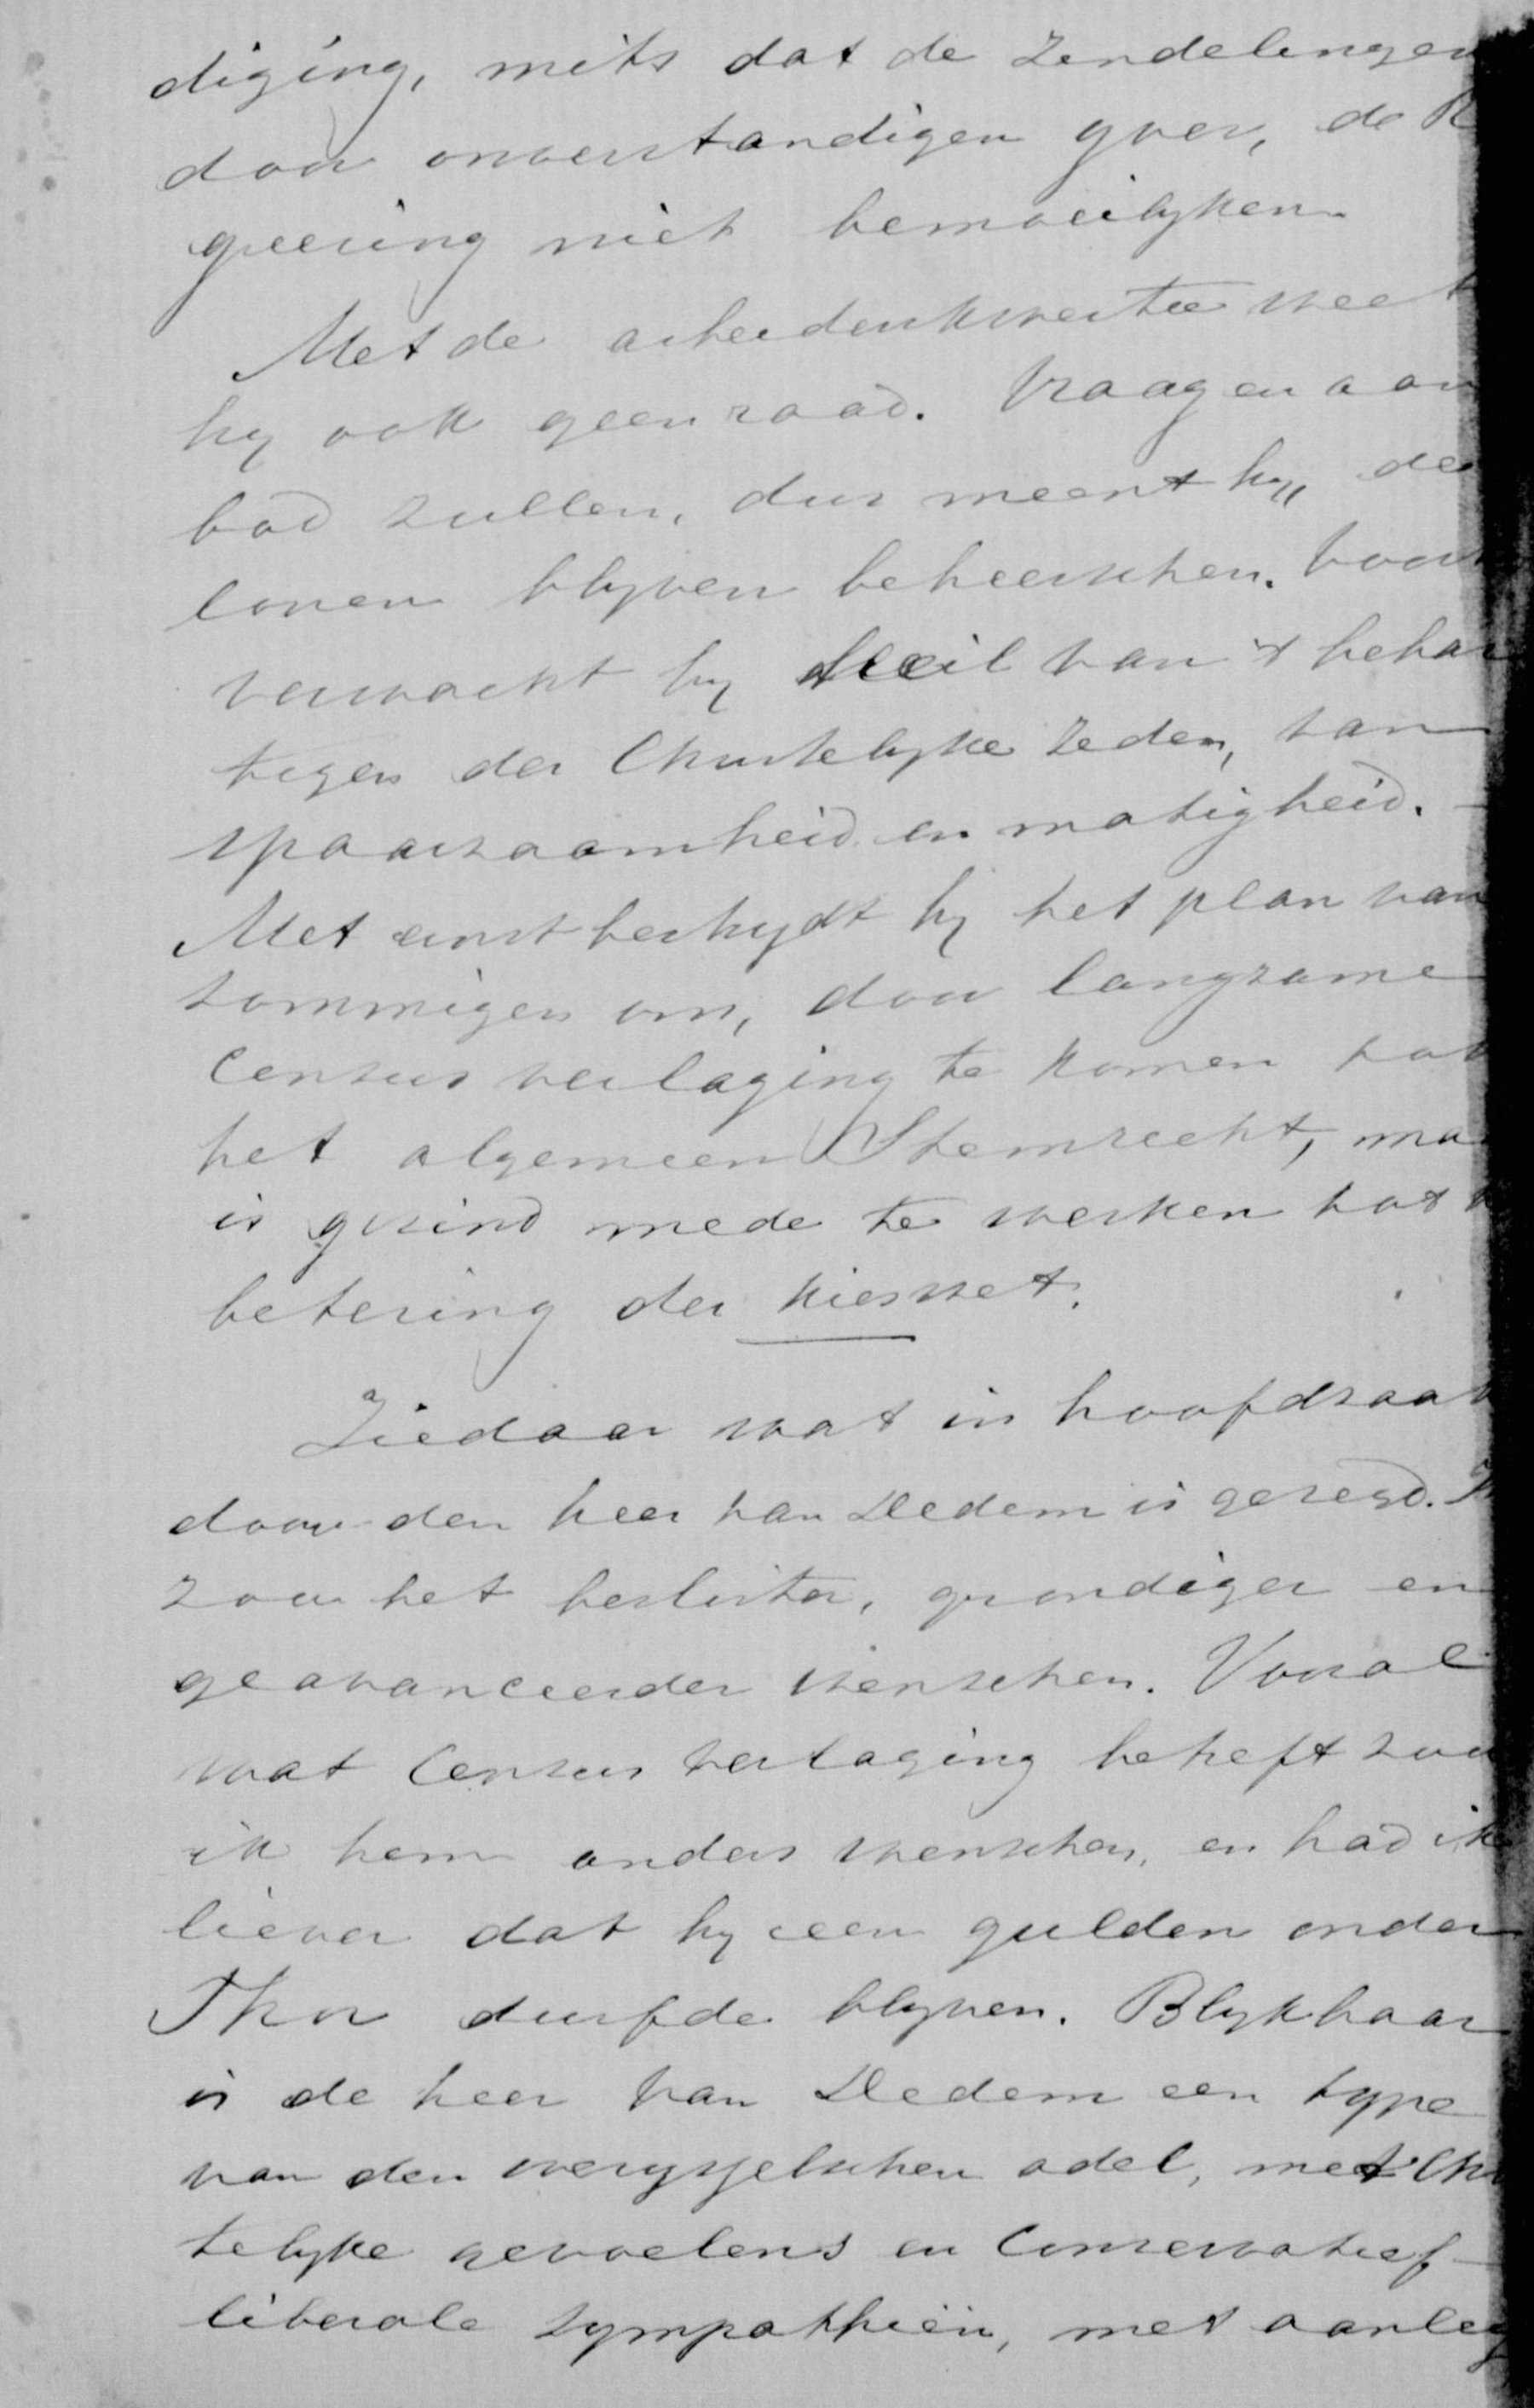 diging, mits dat de Zendelingen
door onverstandigen yver, de R
geering niet bemoeilyken.
Met de arbeidenkwestie weet
hy ook geen raad. Vraag en aan
bod zullen, dus meent hy, de
lonen blyven beheerschen. Voort
verwacht hy heil van 't behar
tigen der Christelyke zeden, van
spaarzaamheid en matigheid. -
Met ernst bestrydt hy het plan van
sommigen om, door langzame
Census verlaging te komen tot
het algemeen Stemrecht, ma
is gezind mede te werken tot v
betering der kieswet.
Ziedaar wat in hoofdzaak
door den heer van Dedem is gezegd. Ik
zou het beslister, grondiger en
geavanceerder wenschen. Vooral
wat Census verlaging betreft zou
ik hem anders wenschen, en had ik
liever dat hy een gulden onder
Thor durfde blyven. Blykbaar
is de heer van Dedem een type
van den overysselschen adel, met Chr
telyke gevoelens en Conservatief-
liberale sympathiën, met aanleg